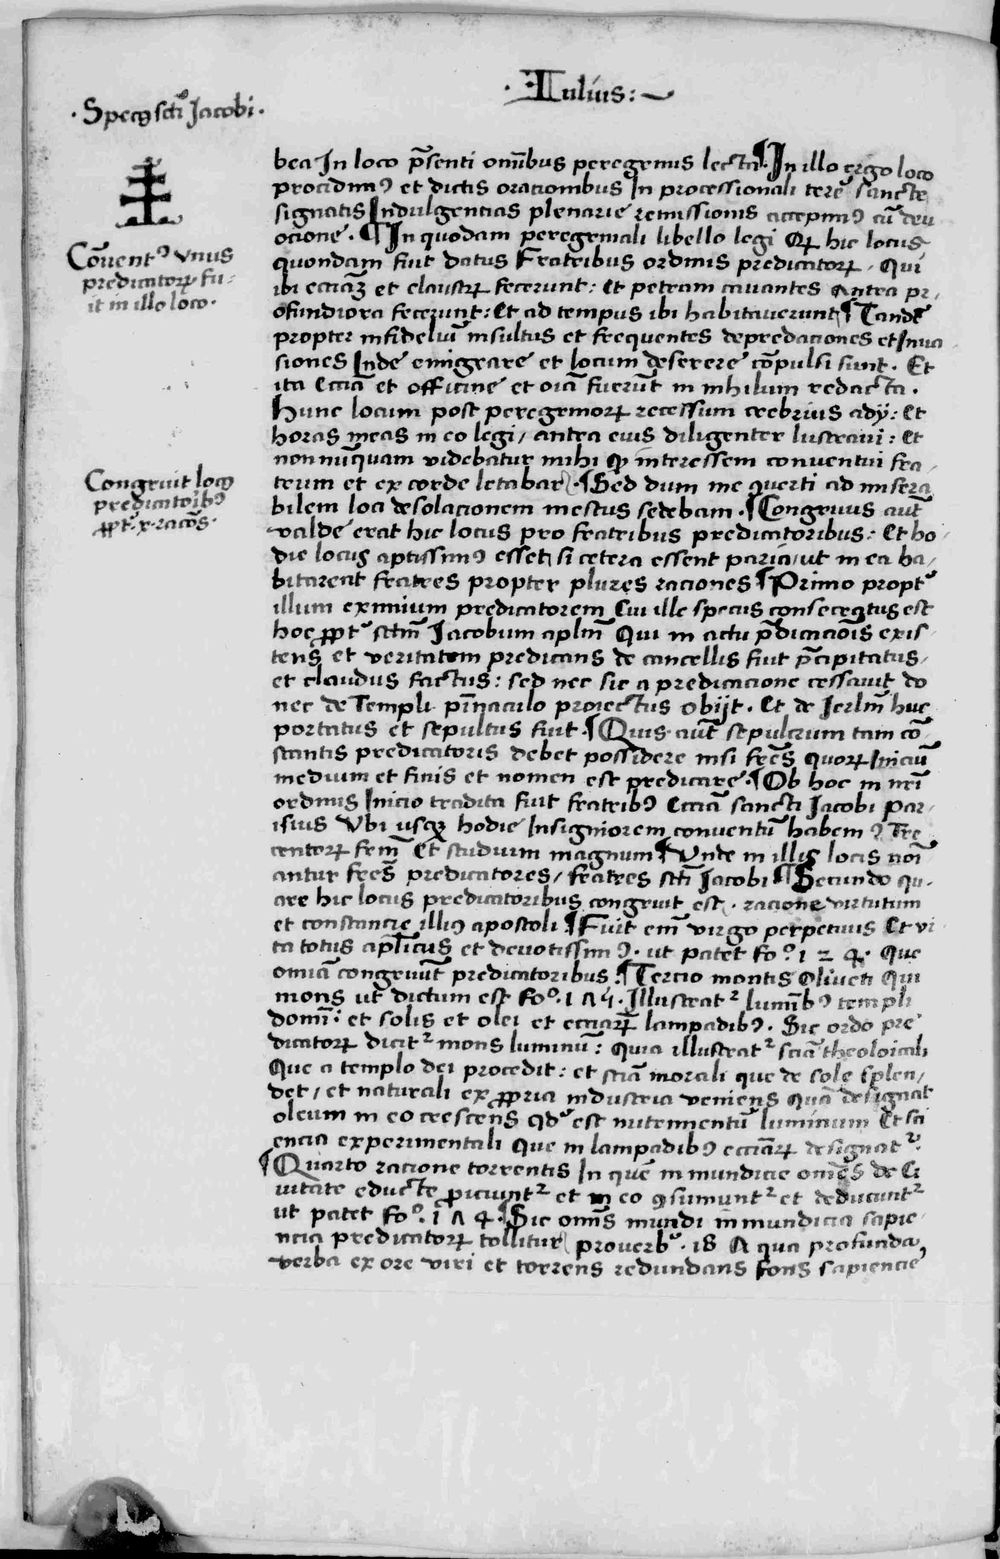 · Iulius :~
· Specꝰ scti Jacobi ·
Cōventꝰ vnus
predicatorꝝ fu-
it in illo loco ·
Congruit locꝰ
predicatoribꝰ
ꝓpt. x. racōs ·
bea In loco p̄senti om̄ibus peregrinis lecta ¶ In illo ergo loco
procidimꝰ et dictis oracionibus In processionali terē sancte
signatis Indulgentias plenarie remissionis accepimꝰ cū deu
ocione · ¶ In quodam peregrinali libello legi qꝫ hic locus
quondam fuit datus Fratribus ordinis predicatorꝝ · Qui
ibi ecciāꝫ et claustrꝫ fecerunt : Et petram cauantes Antra pr-
ofundiora fecerunt : Et ad tempus ibi habitauerunt ¶ Tandē
propter infideliū insultus et frequentes depredaciones et Inua
siones Inde emigrare et locum deserere cōpulsi sunt · Et
ita Eccia et officine et oiā fuerūt in nihilum redacta ·
Hunc locum post peregrinorꝝ recessum crebrius adij : Et
horas meas in eo legi / antra eius diligenter lustraui : Et
nonnūquam videbatur mihi qꝫ interessem conventui fra-
trum et ex corde letabar · ¶ Sed dum me ꝯuerti ad misera
bilem loci desolacionem mestus sedebam · ¶ Congruus aūt
valde erat hic locus pro fratribus predicatoribus : Et ho-
die locus aptissimꝰ esset si cetera essent paria / ut in ea ha-
bitarent fratres propter plures raciones ¶ Primo propt'
illum eximium predicatorem Cui ille specus consecratus est
hoc ꝓpt' sctm̄ Jacobum aplm̄ Qui in actu p̄dicaciōis exis-
tens et veritatem predicans de cancellis fuit p̄cipitatus /
et claudus factus : sed nec sic a predicacione cessauit do
nec de Templi pīnaculo proiectus obijt · Et de Jerlm̄ huc
portatus et sepultus fuit · ¶ Quis aūt sepulcrum tam cō-
stantis predicatoris debet possidere nisi fr̄es quorꝝ Iniciū
medium et finis et nomen est predicare · ¶ Ob hoc in nr̄i
ordinis Inicio tradita fuit fratribꝰ Ecciā sancti Jacobi par-
isius Vbi usqꝫ hodie Insigniorem conventū habemꝰ Tre
centorꝝ frm̄ Et studium magnum ¶ Vnde in illis locis noi
antur fr̄es predicatores / fratres scti Jacobi ¶ Secundo qu-
are hic locus predicatoribus congruit est · racione virtutum
et constancie illiꝰ apostoli ¶ Fuit em̄ virgo perpetuus Et vi-
ta totus apl̄icus et deuotissimꝰ · ut patet foº · 124 · Que
omiā congruūt predicatoribus : ¶ Tercio montis Oliueti Qui
mons ut dictum est Foº · 175 · Illustrat² lumībꝰ templi
domī : et solis et olei et ecciarꝝ lampadibꝰ · Sic ordo pre-
dicatorꝝ dicit² mons luminū : Quia illustrat² sciā theoloicali
Que a templo dei procedit : et sciā morali que de sole splen-
det / et naturali ex ꝓpria industria veniens quā designat
oleum in eo crescens qd' est nutrimentū luminum Et sci
encia experimentali Que in lampadibꝰ ecciarꝝ designat² ·
¶ Quarto racione torrentis In quē in mundicie om̄es de Ci
vitate educte proiciunt² et in eo ꝯsumunt² et deducunt²
ut patet Foº · 174 · ¶ Sic om̄is mundi inmundicia sapie-
ncia predicatorꝝ tollitur proverb' · 18 Aqua profunda,
verba ex ore viri et torrens redundans fons sapiencie